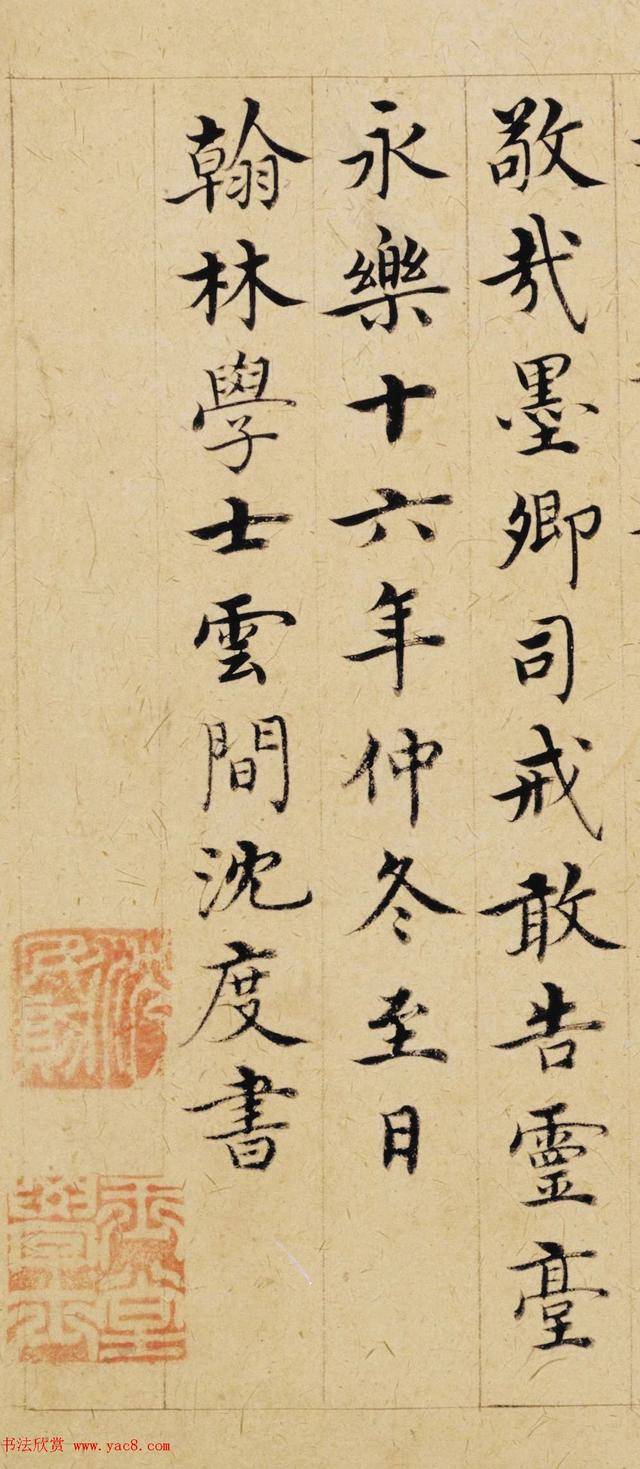 敬哉墨卿司戒敢告靈臺
永樂十六年仲冬至日
翰林學士雲間沈度書
书法欣赏 www.yac8.com